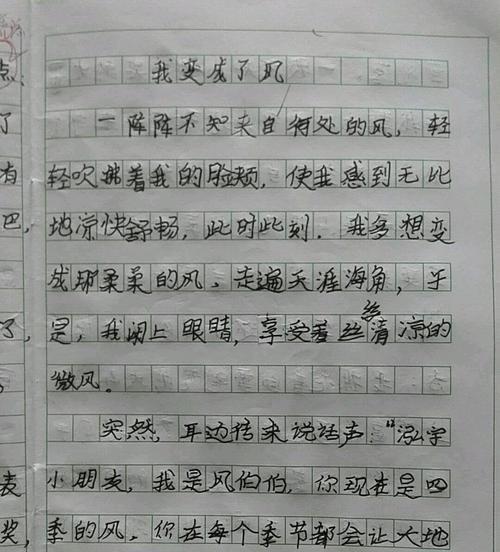 我变成了风
一阵阵不知来自得处的风，轻
轻吹拂着我的脸颊，使我感到无比
地凉快舒畅，此时此刻，我多想变
成那柔柔的风、走遍天涯海角，于
是，我闭上眼睛，享受着丝丝清凉的
微风。
突然，耳边传来说话声："泓宇
小朋友，我是风伯伯，你现在是四
季的风，你在每个季节都会让大地
点：
了
有
巴，
了，
表
奖，